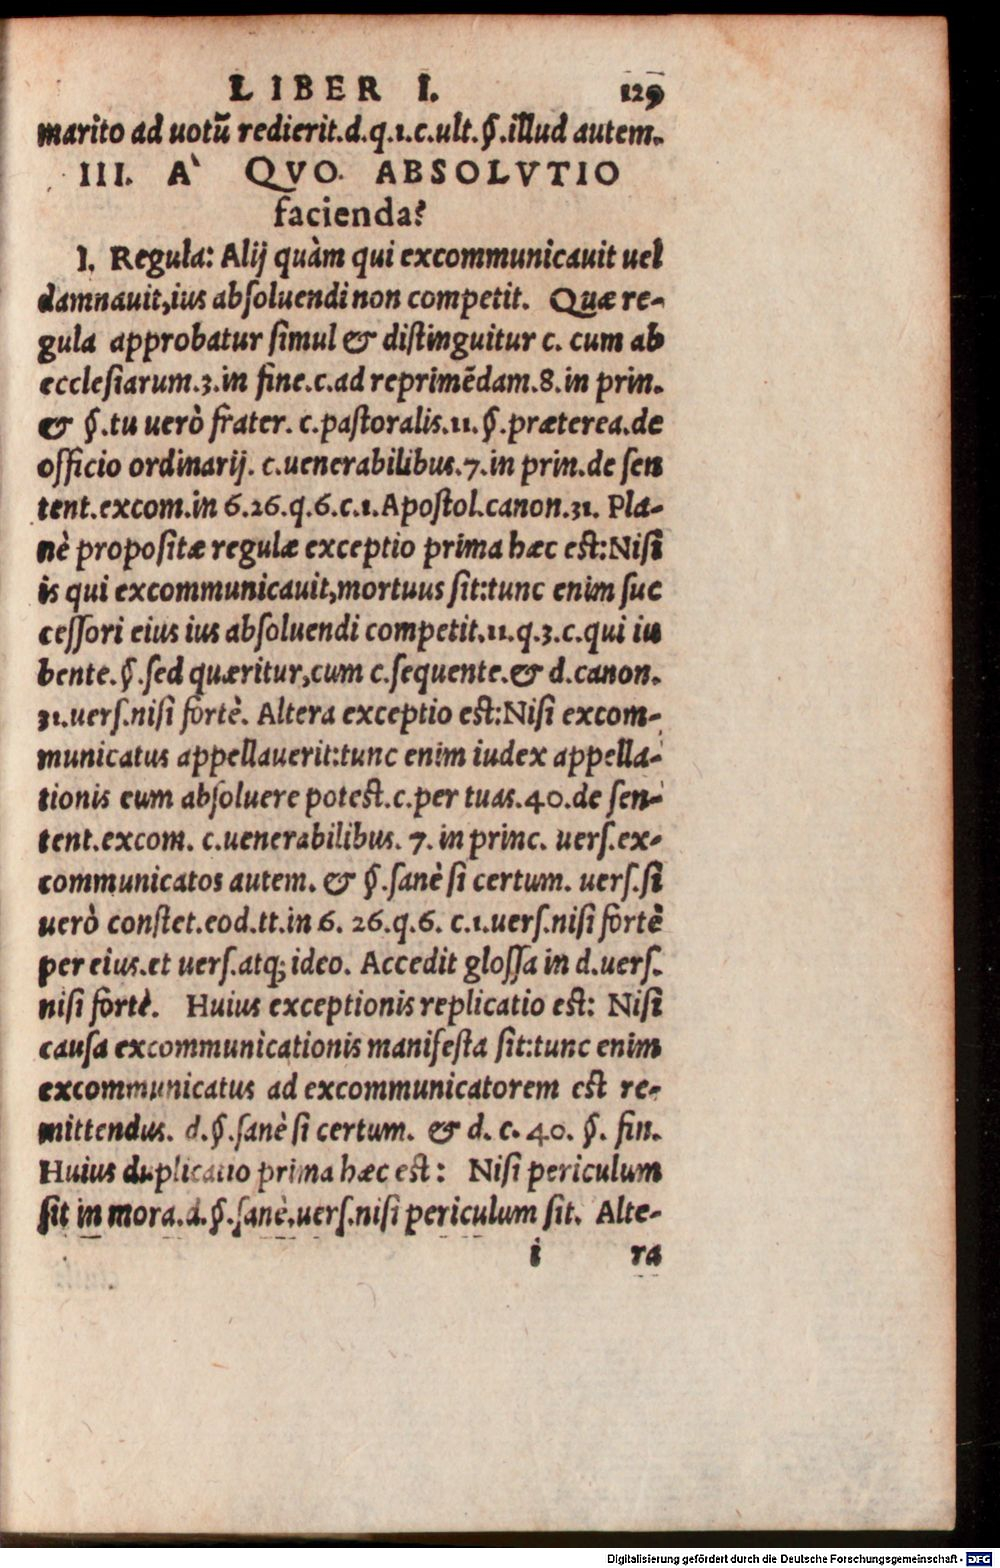 LIBER I. 129
marito ad uotū redierit.d.q.1.c.ult.§.illud autem.
III. A` QVO. ABSOLVTIO
facienda?
I. Regula: Alij quàm qui excommunicauit uel
damnauit,ius abſoluendi non competit. Quæ re-
gula approbatur ſimul & diſtinguitur c. cum ab
eccleſiarum.3.in fine.c.ad reprimēdam.8.in prin.
& §.tu uerò frater. c.paſtoralis.11.§.præterea.de
officio ordinarij. c.uenerabilibus.7.in prin.de ſen
tent.excom.in 6.26.q.6.c.1.Apoſtol.canon.31. Pla-
nè propoſitæ regulæ exceptio prima hæc eſt:Niſi
is qui excommunicauit,mortuus ſit:tunc enim ſuc
ceſſori eius ius abſoluendi competit.11.q.3.c.qui iu
bente.§.ſed quæritur,cum c.ſequente.& d.canon.
31.uerſ.niſi fortè. Altera exceptio eſt:Niſi excom-
municatus appellauerit:tunc enim iudex appella-
tionis eum abſoluere poteſt.c.per tuas.40.de ſen-
tent.excom. c.uenerabilibus. 7. in princ. uerſ.ex-
communicatos autem. & §.ſanè ſi certum. uerſ.ſi
uerò conſtet.eod.tt.in 6. 26.q.6. c.1.uerſ.niſi fortè
per eius.et uerſ.atq; ideo. Accedit gloſſa in d.uerſ.
niſi fortè. Huius exceptionis replicatio eſt: Niſi
cauſa excommunicationis manifeſta ſit:tunc enim
excommunicatus ad excommunicatorem eſt re-
mittendus. d.§.ſanè ſi certum. & d. c. 40. §. fin.
Huius duplicatio prima hæc eſt: Niſi periculum
ſit in mora.d.§.ſanè.uerſ.niſi periculum ſit. Alte-
i ra
Digitalisierung gefördert durch die Deutsche Forschungsgemeinschaft - DFG